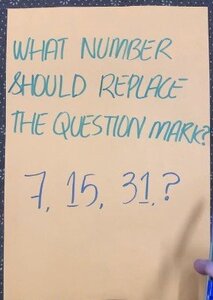 WHAT NUMBER
SHOULD REPLACE
THE QUESTION MARK?
7, 15, 31, ?